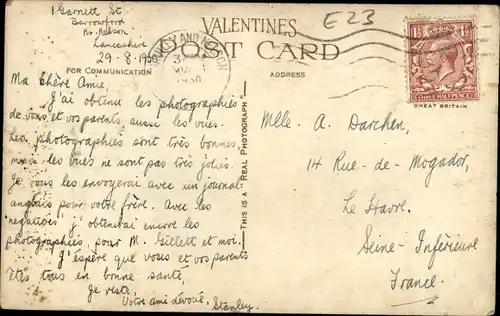 1 Garnett St.
Barrowford
Nr. Nelson
Lancashire
29-8-1930
E23
VALENTINES
POST CARD
FOR COMMUNICATION
ADDRESS
1½ 1½
THREE HALFPENCE
GREAT BRITAIN
Ma Chère Amie,
J'ai obtenu les photographies
de vous et vos parents aussi les vues.
Les photographies sont très bonnes,
mais les vues ne sont pas très jolies.
Je vous les envoyerai avec un journal
anglais pour votre frère. Avec les
negatives j'obtenerai encore les
photographies, pour M. Gillett et moi.
J'espère que vous et vos parents
êtes tous en bonne santé,
Je reste,
Votre ami dévoué, Stanley.
THIS IS A REAL PHOTOGRAPH
Mlle. A. Darchen,
14 Rue-de-Mogador,
Le Havre.
Seine-Inférieure
France.